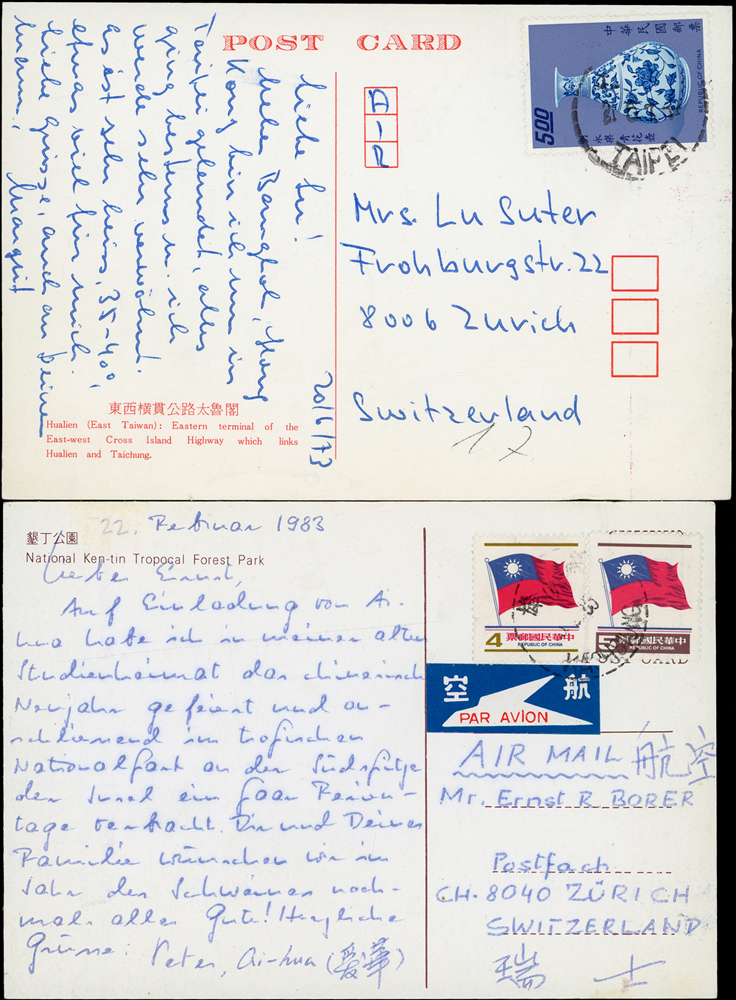 POST CARD
中華民國郵票
REPUBLIC OF CHINA
5.00
永樂青花壺
TAIPEI
A
I
R
Liebe Lu!
Neben Bangkok, Hong
Kong bin ich nun in
Taipei gelandet, alles
ging bestens u. ich
werde sehr verwöhnt.
es ist sehr heiss, 35-40°,
etwas viel für mich.
Liebe Grüsse, auch an Deinen
Mann,
Margrit
20/6/73
Mrs. Lu Suter
Frohburgstr. 22
8006 Zürich
Switzerland
17
東西橫貫公路太魯閣
Hualien (East Taiwan): Eastern terminal of the
East-west Cross Island Highway which links
Hualien and Taichung.
22. Februar 1983
墾丁公園
National Ken-tin Tropocal Forest Park
Lieber Ernst,
Auf Einladung von Ai-
hua habe ich in meiner alten
Studienheimat das chinesische
Neujahr gefeiert und an-
schliessend im tropischen
Nationalpark an der Südspitze
der Insel ein paar Ferien-
tage verbracht. Dir und Deiner
Familie wünschen wir im
Jahr des Schweines noch-
mals alles Gute! Herzliche
Grüsse: Peter, Ai-hua (愛華)
4
票郵國民華中
REPUBLIC OF CHINA
5
票郵國民華中
REPUBLIC OF CHINA
CARD
空 航
PAR AVION
AIR MAIL 航空
Mr. Ernst R BORER
Postfach
CH-8040 ZÜRICH
SWITZERLAND
瑞士